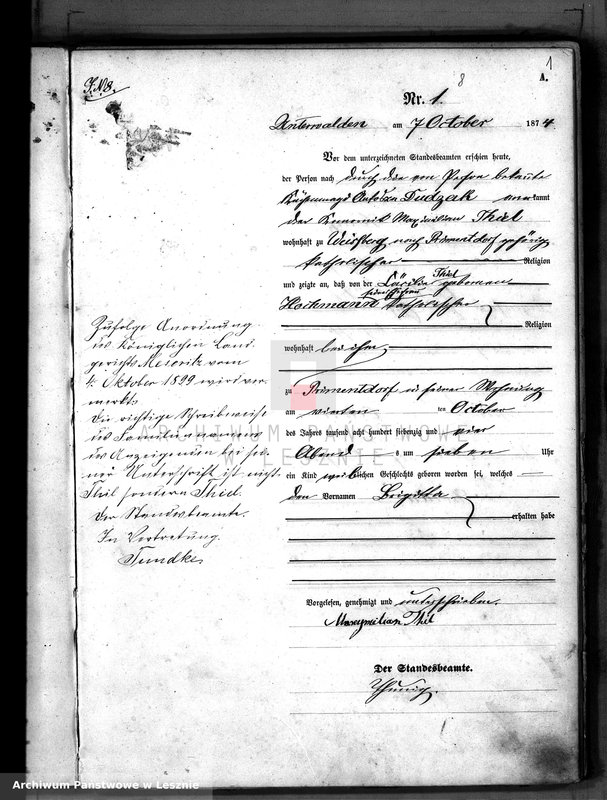 J.N8.
1
8
A.
Nr. 1.
Unterwalden am 7 October 1874
Vor dem unterzeichneten Standesbeamten erschien heute,
der Person nach durch die von Person bekannte
Dudzak anerkannt
der Maximilian Thiel
wohnhaft zu Weissberg nach Priementdorf gehörig
katholischer Religion
und zeigte an, daß von der Thiel geborenen
Heckmann seiner Ehefrau katholischer
Religion
wohnhaft bei ihm
zu Priementdorf in seiner Wohnung
am vierten ten October
des Jahres tausend acht hundert siebenzig und vier
Abends um sieben Uhr
ein Kind weiblichen Geschlechts geboren worden sei, welches
den Vornamen Brigitta
erhalten habe
Vorgelesen, genehmigt und unterschrieben.
Maxymilian Thil
Der Standesbeamte.
Zufolge Anordnung
des Königlichen Land
gerichts Meseritz vom
4. Oktober 1899 wird ver
merkt:
Die richtige Schreibweise
des Familiennamens
des Anzeigenden bei sei
ner Unterschrift ist nicht
Thil sondern Thiel.
Der Standesbeamte.
In Vertretung.
ARCHIWUM PAŃSTWOWE
W LESZNIE
Archiwum Państwowe w Lesznie